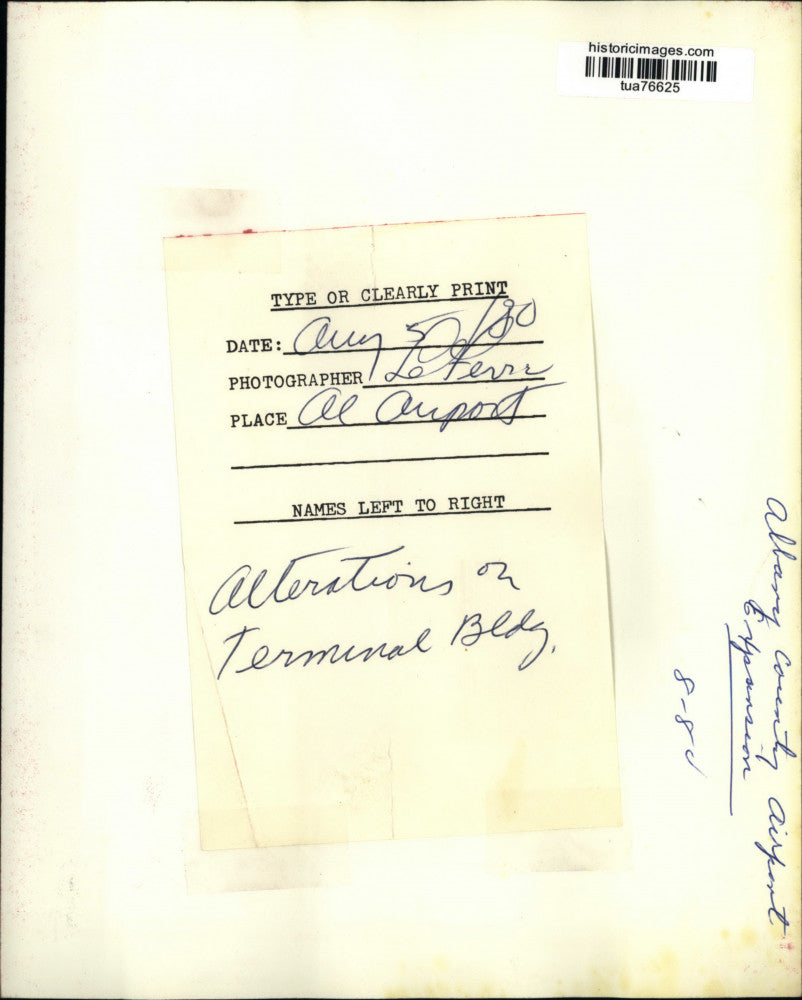 historicimages.com
tua76625
TYPE OR CLEARLY PRINT
DATE: Aug 5/80
PHOTOGRAPHER LeFevre
PLACE Al Airport
NAMES LEFT TO RIGHT
Alterations on
Terminal Bldg.
Albany County Airport
Expansion
8-80